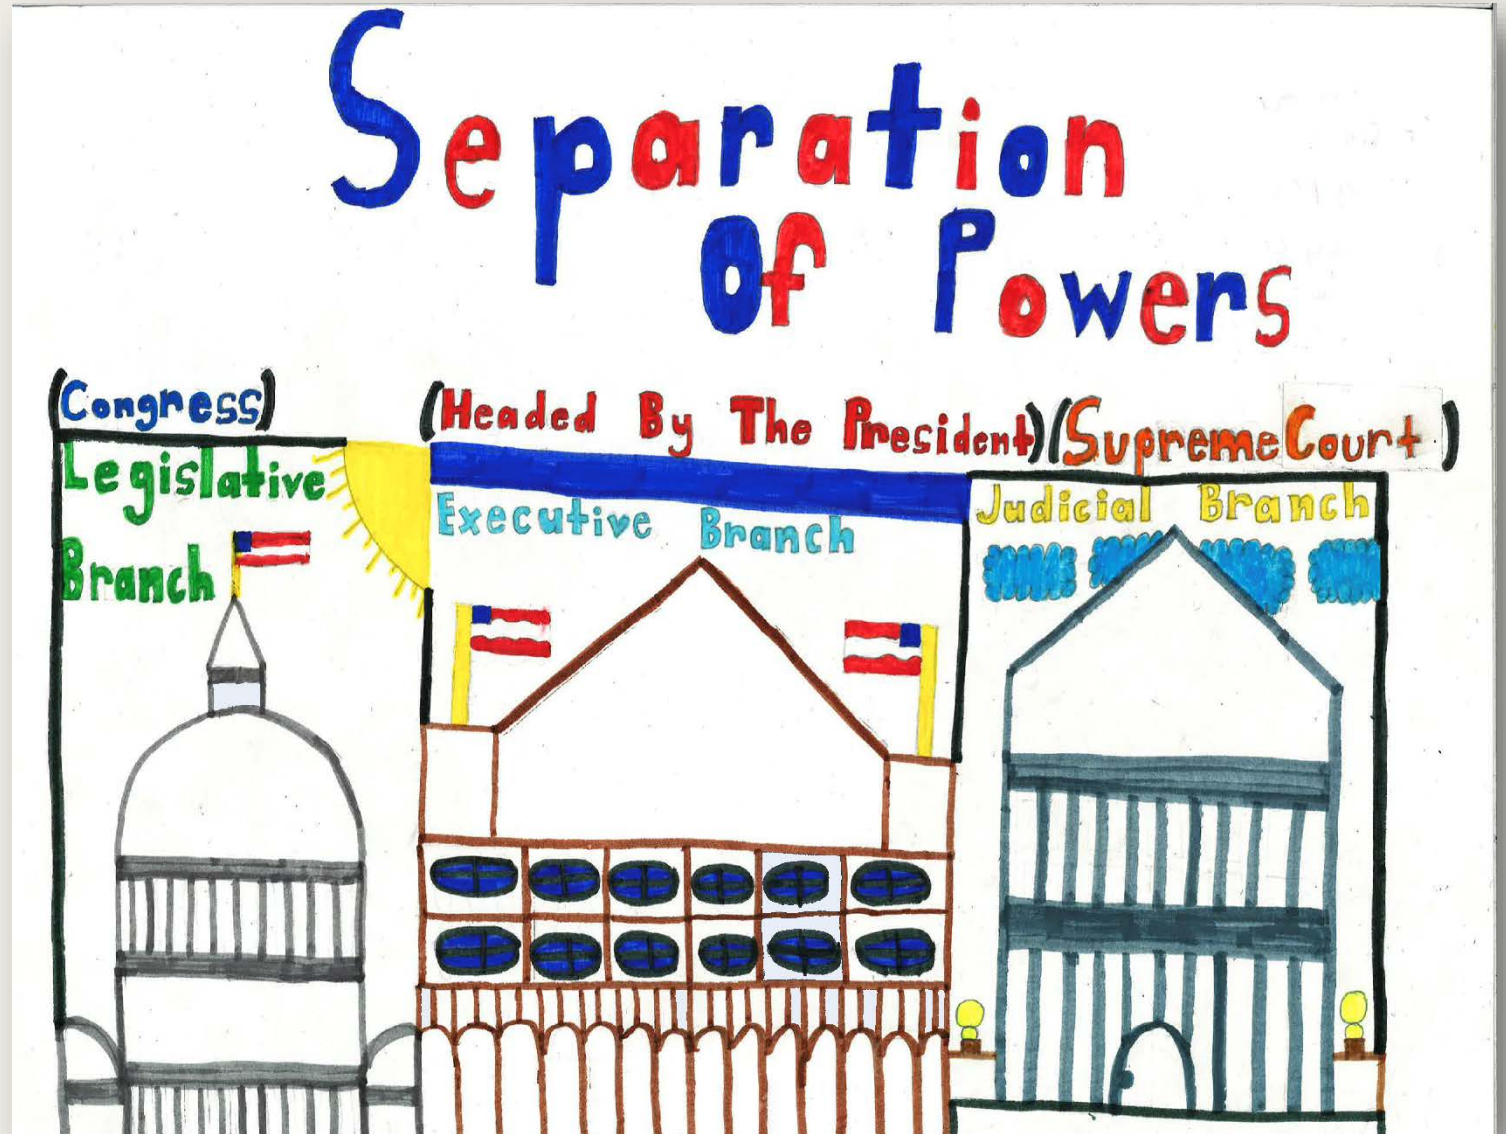 Separation
Of Powers
(Congress)
Legislative
Branch
(Headed By The President)
Executive Branch
(Supreme Court)
Judicial Branch